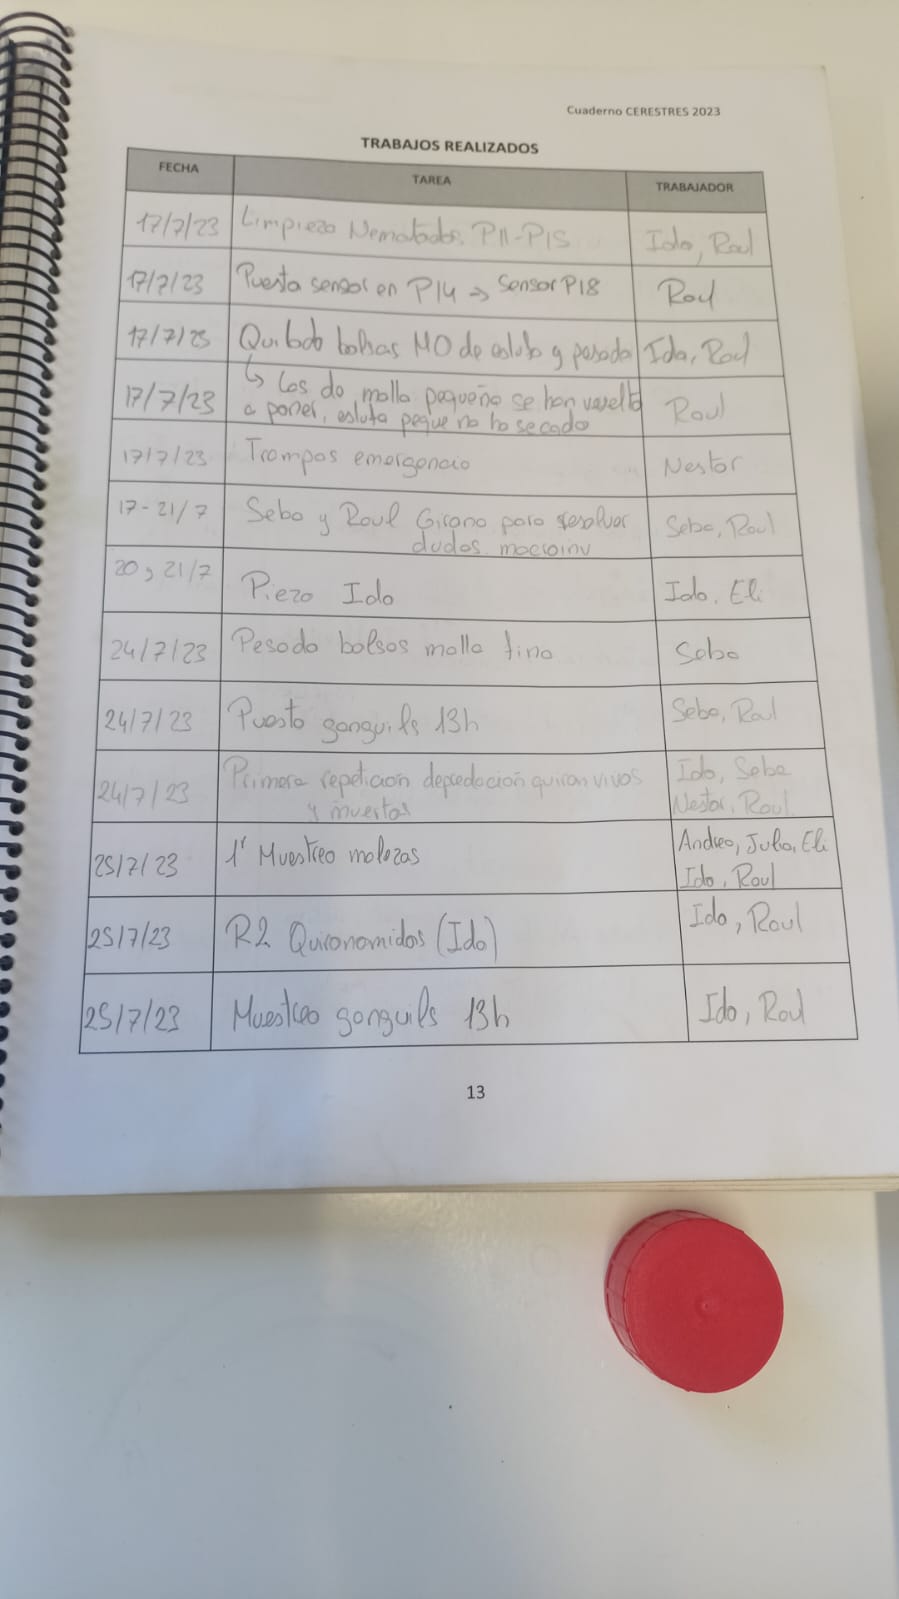 Cuaderno CERESTRES 2023
TRABAJOS REALIZADOS
FECHA TAREA TRABAJADOR
17/7/23 Limpieza Nematodos. P11-P15 Ida, Raul
17/7/23 Puesta sensor en P14 → Sensor P18 Raul
17/7/23 Quitado bolsas MO de esluta y pesada Ida, Raul
17/7/23 ↳ Las de malla pequeña se han vuelto Raul
a poner, esluta peque no ha secado
17/7/23 Trampas emergencia Nestor
17-21/7 Seba y Raul Girona para resolver Seba, Raul
dudas macroinv
20 y 21/7 Piezo Ida Ida, Eli
24/7/23 Pesado bolsas malla fina Seba
24/7/23 Puesta ganguils 13h Seba, Raul
24/7/23 Primera repetición depredación quiron vivos Ida, Seba
y muertos Nestor, Raul
25/7/23 1ʳ Muestreo malezas Andrea, Julia, Eli
Ida, Raul
25/7/23 R2 Quironomidos (Ida) Ida, Raul
25/7/23 Muestreo ganguils 13h Ida, Raul
13